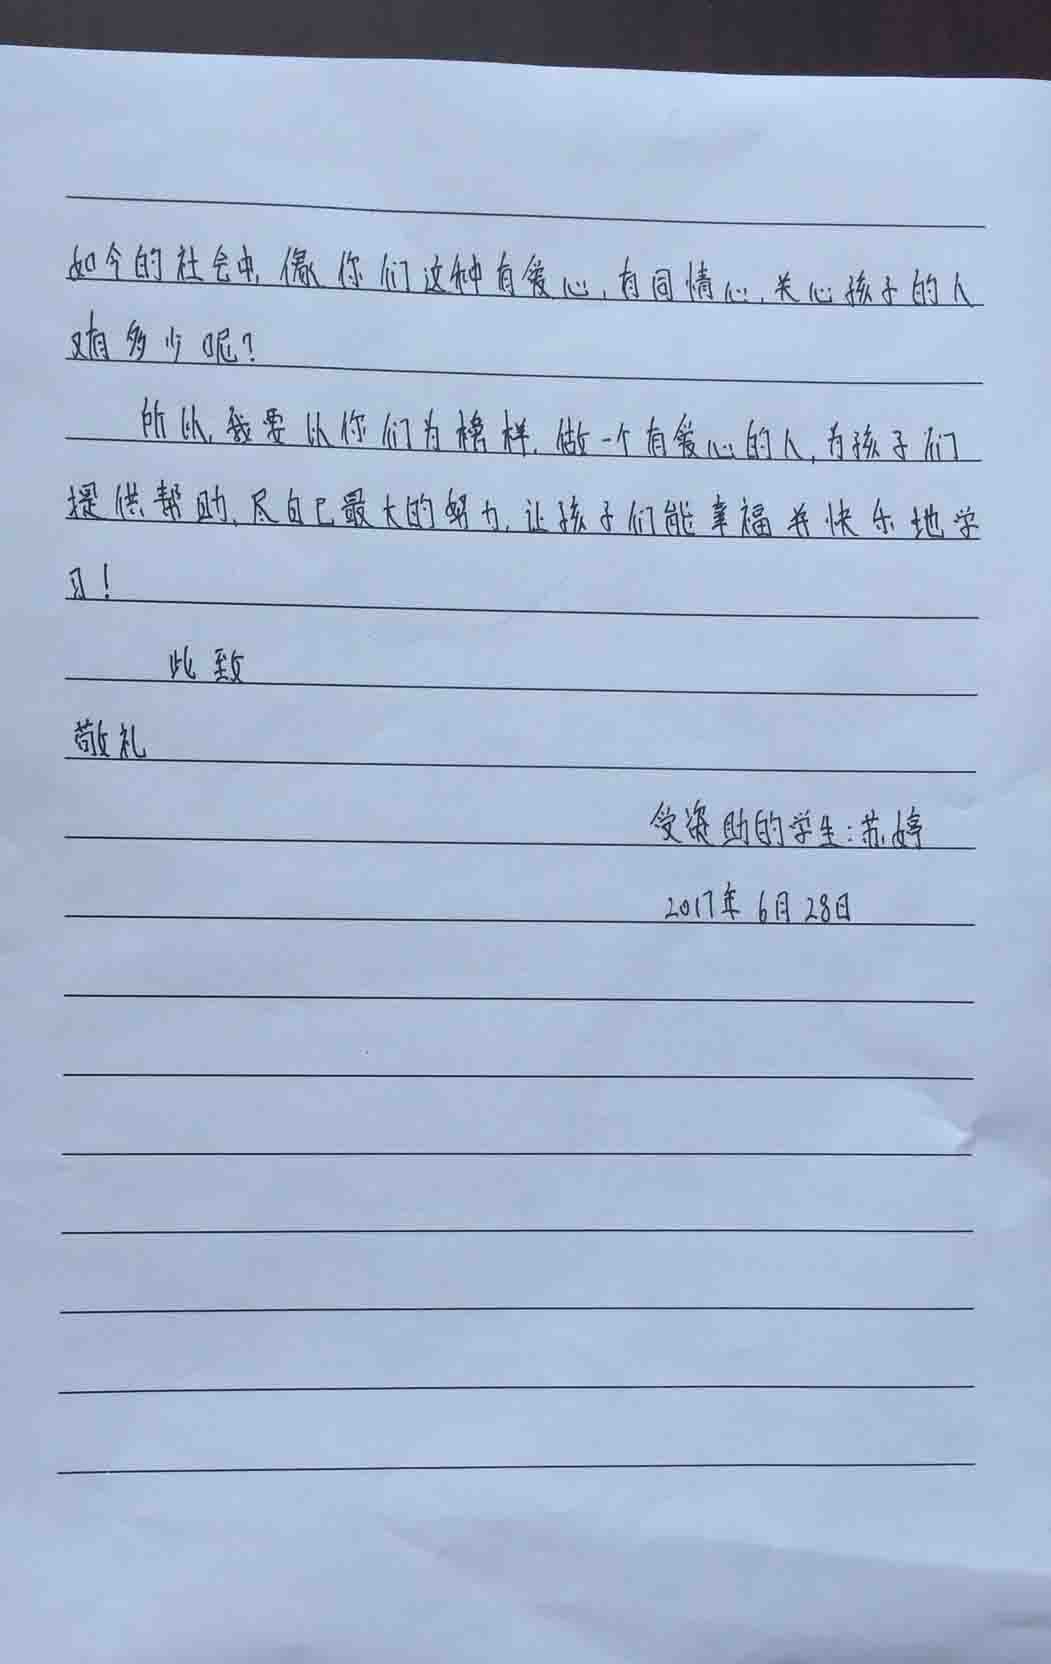 如今的社会中,像你们这种有爱心,有同情心,关心孩子的人
又有多少呢?
所以,我要以你们为榜样,做一个有爱心的人,为孩子们
提供帮助,尽自己最大的努力,让孩子们能幸福并快乐地学
习!
此致
敬礼
受资助的学生:苏婷
2017年6月28日